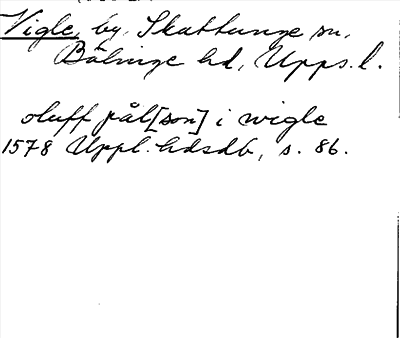 Vigle, by, Skattunge sn,
Bälinge hd, Upps. l.
oluff pål[son] i wigle
1578 Uppl. hdsdb, s. 86.